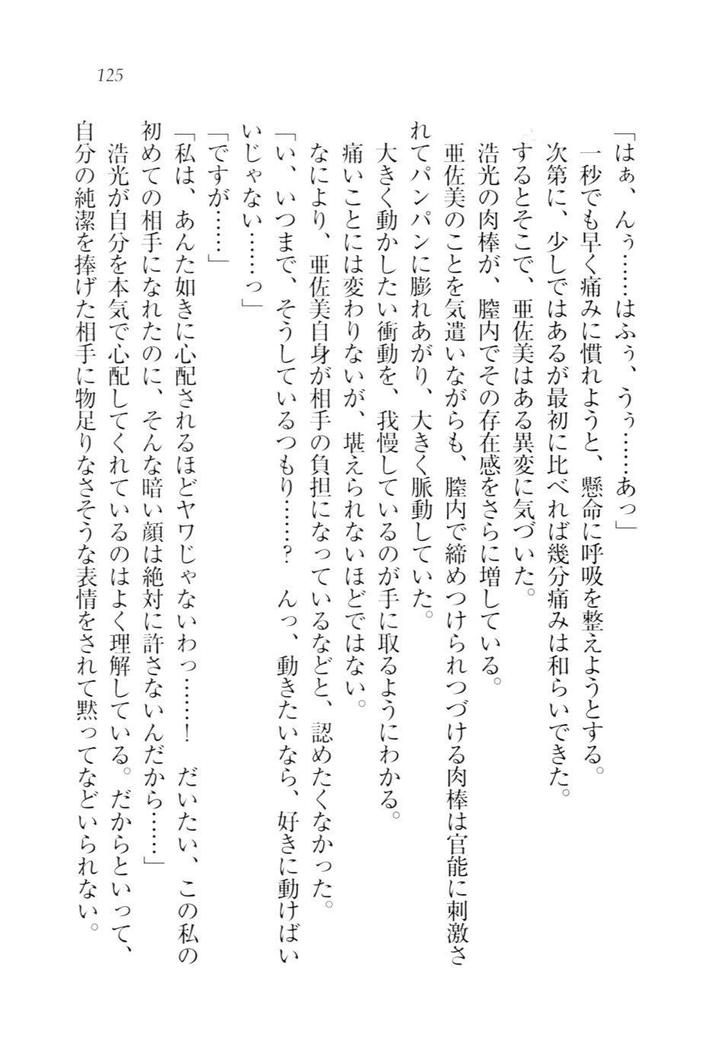 125
「はぁ、んぅ……はふぅ、うぅ……あっ」
一秒でも早く痛みに慣れようと、懸命に呼吸を整えようとする。
次第に、少しではあるが最初に比べれば幾分痛みは和らいできた。
するとそこで、亜佐美はある異変に気づいた。
浩光の肉棒が、膣内でその存在感をさらに増している。
亜佐美のことを気遣いながらも、膣内で締めつけられつづける肉棒は官能に刺激さ
れてパンパンに膨れあがり、大きく脈動していた。
大きく動かしたい衝動を、我慢しているのが手に取るようにわかる。
痛いことには変わりないが、堪えられないほどではない。
なにより、亜佐美自身が相手の負担になっているなどと、認めたくなかった。
「い、いつまで、そうしているつもり……？　んっ、動きたいなら、好きに動けばい
いじゃない……っ」
「ですが……」
「私は、あんた如きに心配されるほどヤワじゃないわっ……！　だいたい、この私の
初めての相手になれたのに、そんな暗い顔は絶対に許さないんだから……」
浩光が自分を本気で心配してくれているのはよく理解している。だからといって、
自分の純潔を捧げた相手に物足りなさそうな表情をされて黙ってなどいられない。